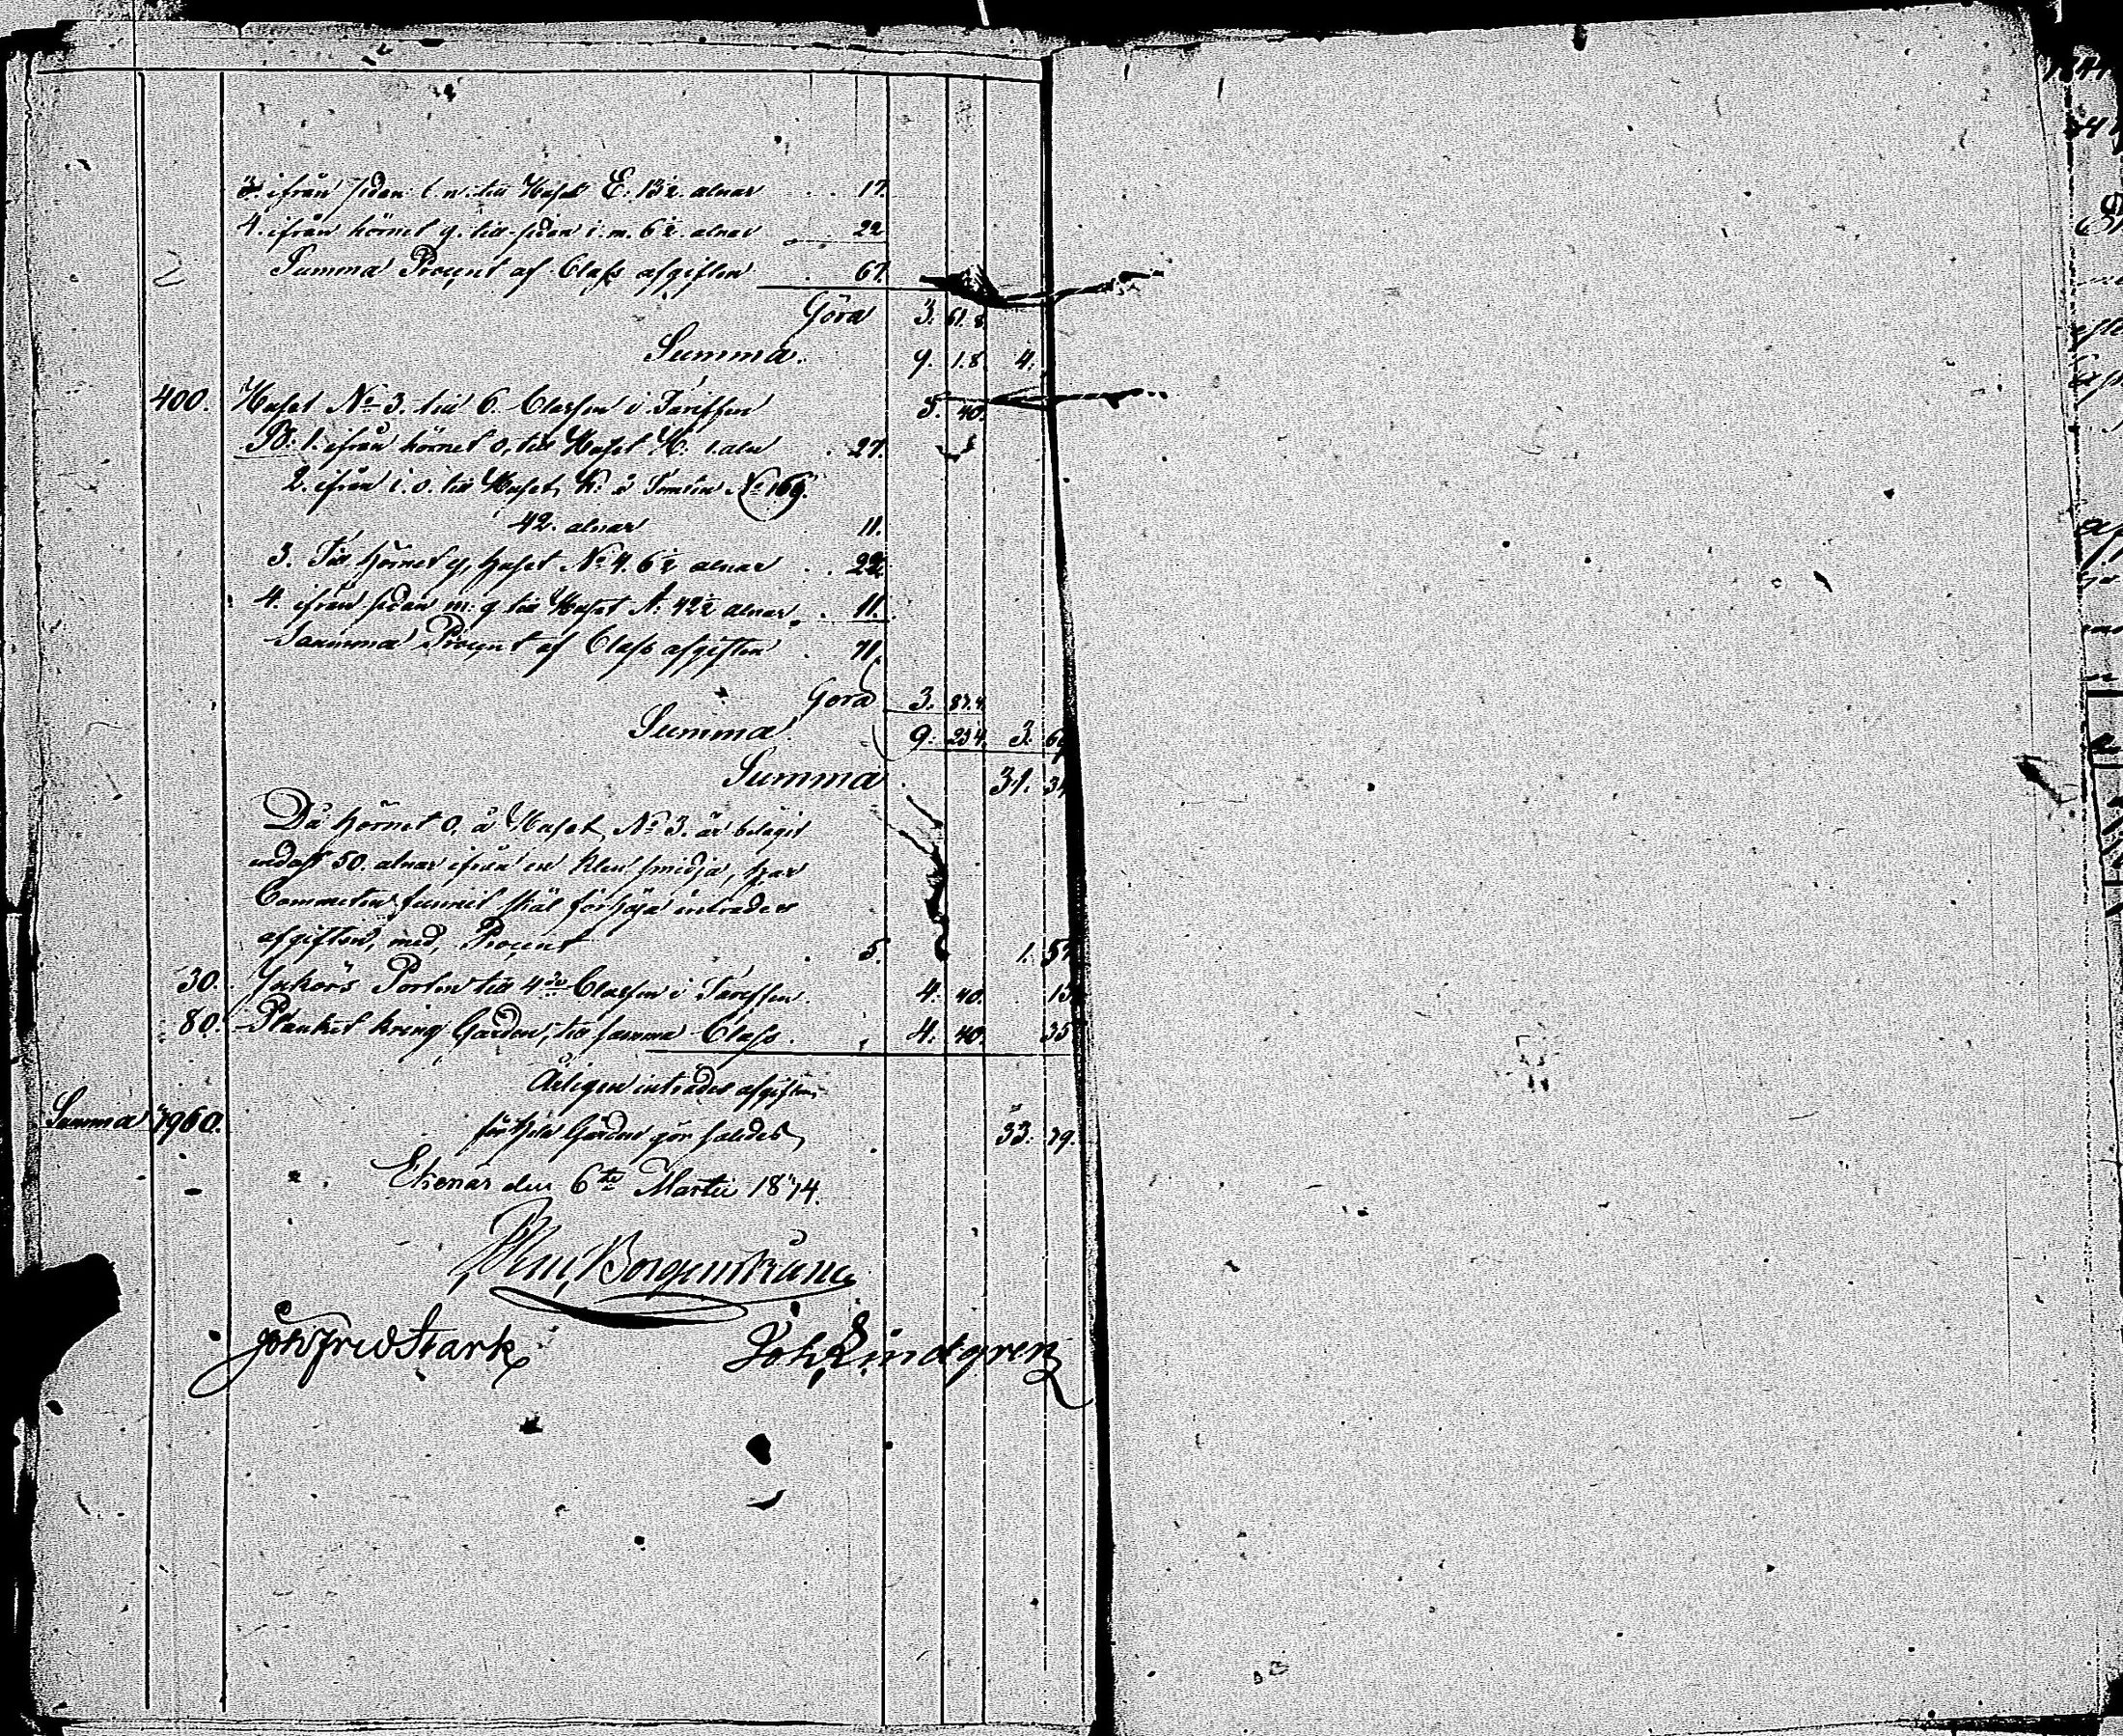 3. ifrån sidan l. n. till Huset E. 13½. alnar . . 17.
4. ifrån hörnet q. till sidan i. m. 6½. alnar . . 22
Summa Procent af Class afgiften . 67.
Göra 3. 61. 8.
Summa. 9. 1. 8. 4.
400. Huset No 3. till 6. Classen i Tariffen 5. 40.
På: 1. ifrån hörnet o, till Huset H. 1. aln . 27.
2. ifrån i. o. till Huset, K. å Tomten No 169.
42. alnar 11.
3. Till hörnet q, huset No 4. 6½ alnar . . 22.
4. ifrån sidan m. q till Huset A: 42½ alnar . . 11.
Summa Procent af Class afgiften . 71.
Göra 3. 83. 4
Summa 9. 23 4. 3.
Summa 31. 34
Då hörnet o, å Huset, No 3. är belägit
endast 50. alnar ifrån en klen smidja, har
Committen funnit skäl förhöja inträdes
afgiften, med, Procent . 5. 1. 57
30. Inkörs Porten till 4de Classen i Tariffen. 4. 40. 13
80. Planket kring Gården, till samma Class. 4. 40. 35
Årligen inträdes afgiften
Summa 7960. för hela Gården gör således 33. 39.
Ekenäs den 6te Martii 1844.
Borgenstråhle
Joh Fred Stark Joh Lindgren